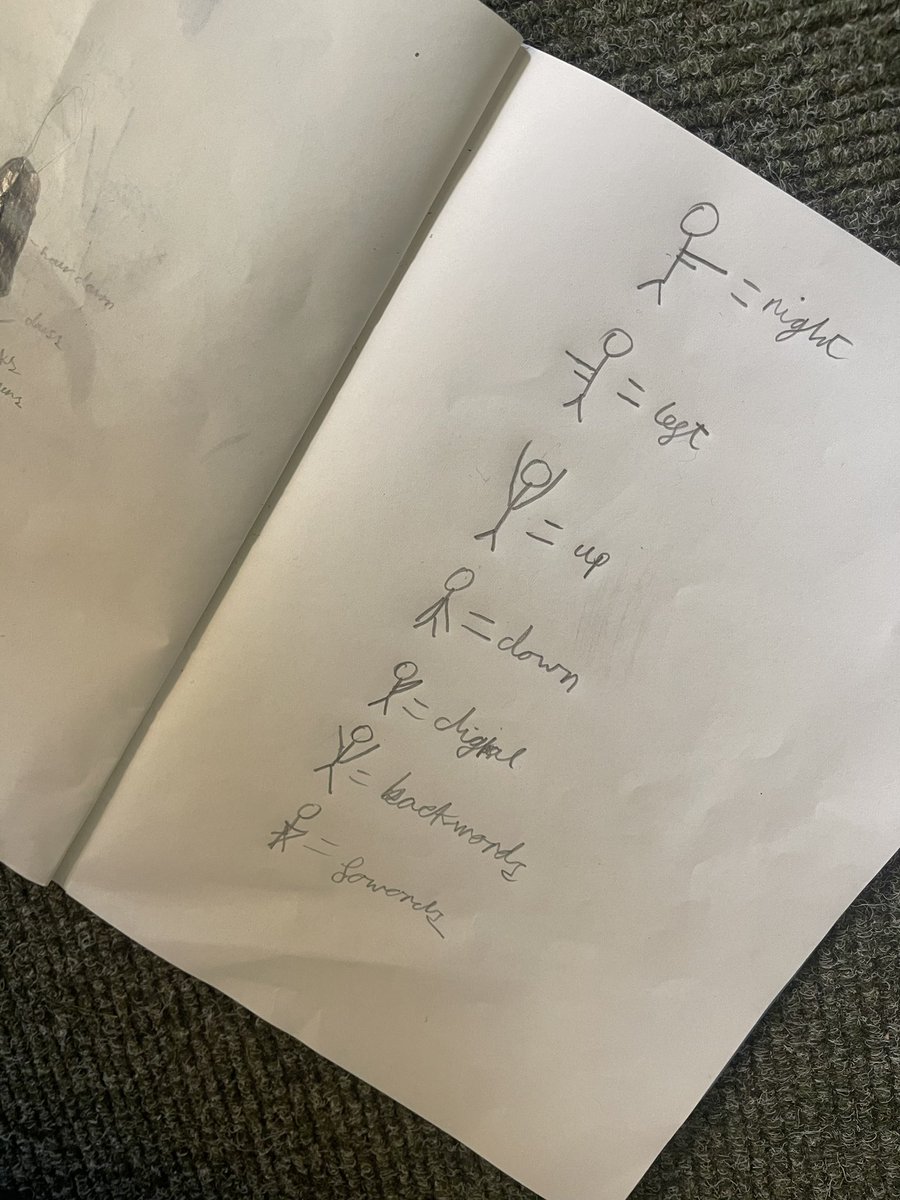 down
= right
= left
= up
= down
= digital
= backwords
= fowords